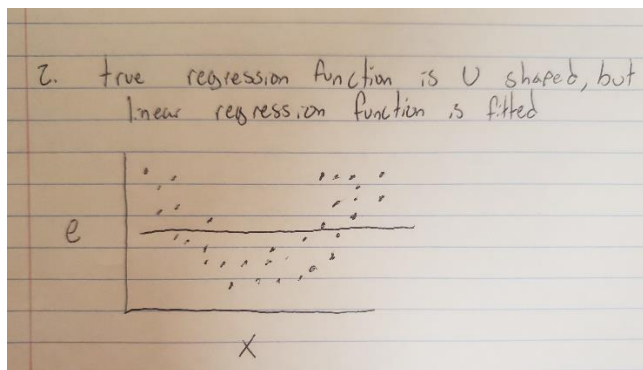 2. true regression function is U shaped, but
linear regression function is fitted
e
X